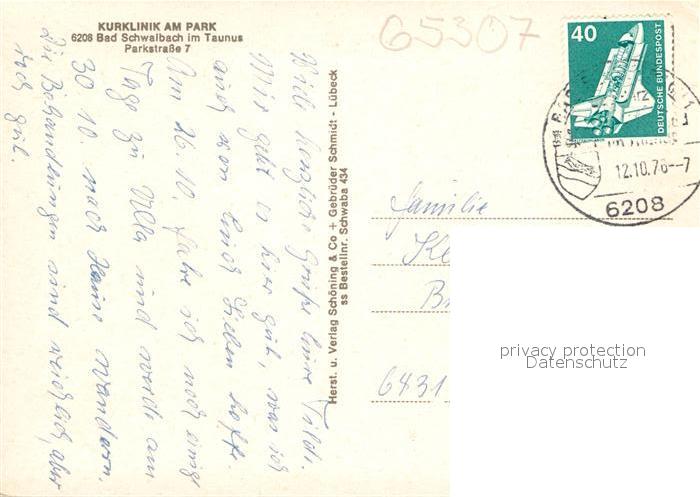 KURKLINIK AM PARK
6208 Bad Schwalbach im Taunus
Parkstraße 7
65307
40
DEUTSCHE BUNDESPOST
12.10.76--7
6208
Die Behandlungen sind reichlich, aber
auch gut.
30.10. nach Hause wandern.
Tage zu Ulla und werde am
Am 26.10. fahre ich noch einige
auch von Euch Lieben hoffe.
Mir geht es hier gut, was ich
Viele herzliche Grüße Eure Tilda.
Herst. u. Verlag Schöning & Co + Gebrüder Schmidt - Lübeck
ss Bestellnr. Schwaba 434
Familie
6431
privacy protection
Datenschutz